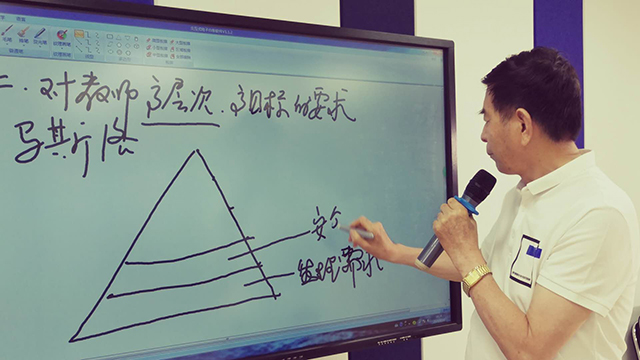 二、对教师高层次、高目标的要求
马斯洛
安全
生理需求